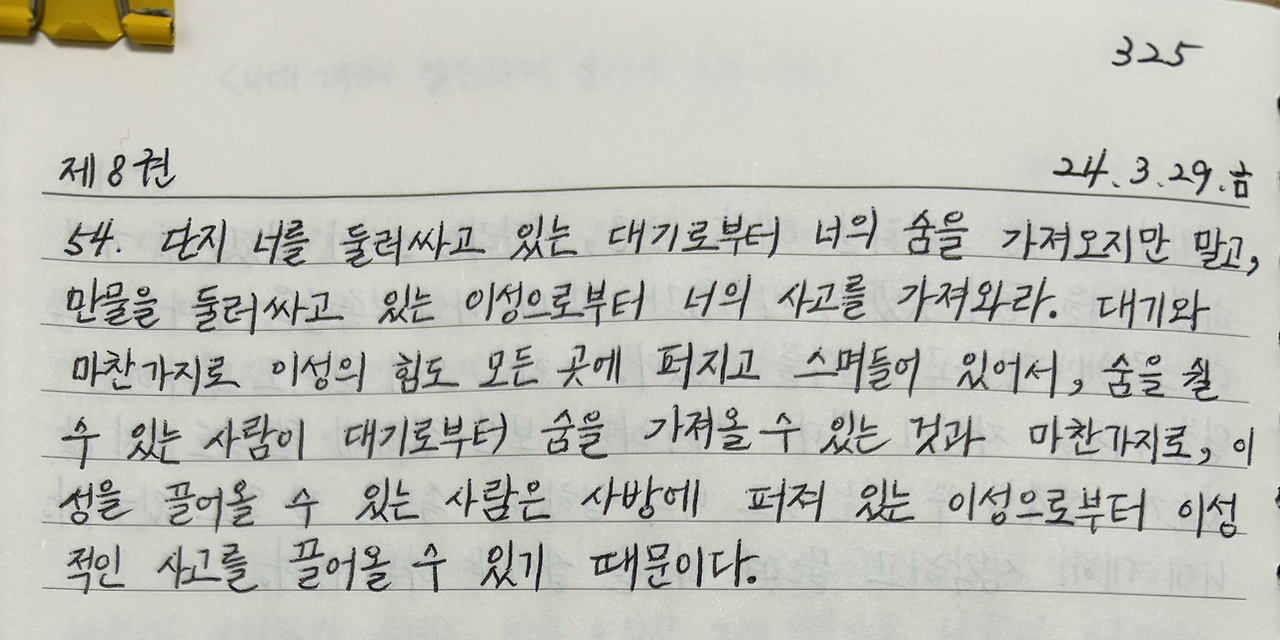 325
제8권 24.3.29.금
54. 단지 너를 둘러싸고 있는 대기로부터 너의 숨을 가져오지만 말고,
만물을 둘러싸고 있는 이성으로부터 너의 사고를 가져와라. 대기와
마찬가지로 이성의 힘도 모든 곳에 퍼지고 스며들어 있어서, 숨을 쉴
수 있는 사람이 대기로부터 숨을 가져올 수 있는 것과 마찬가지로, 이
성을 끌어올 수 있는 사람은 사방에 퍼져 있는 이성으로부터 이성
적인 사고를 끌어올 수 있기 때문이다.